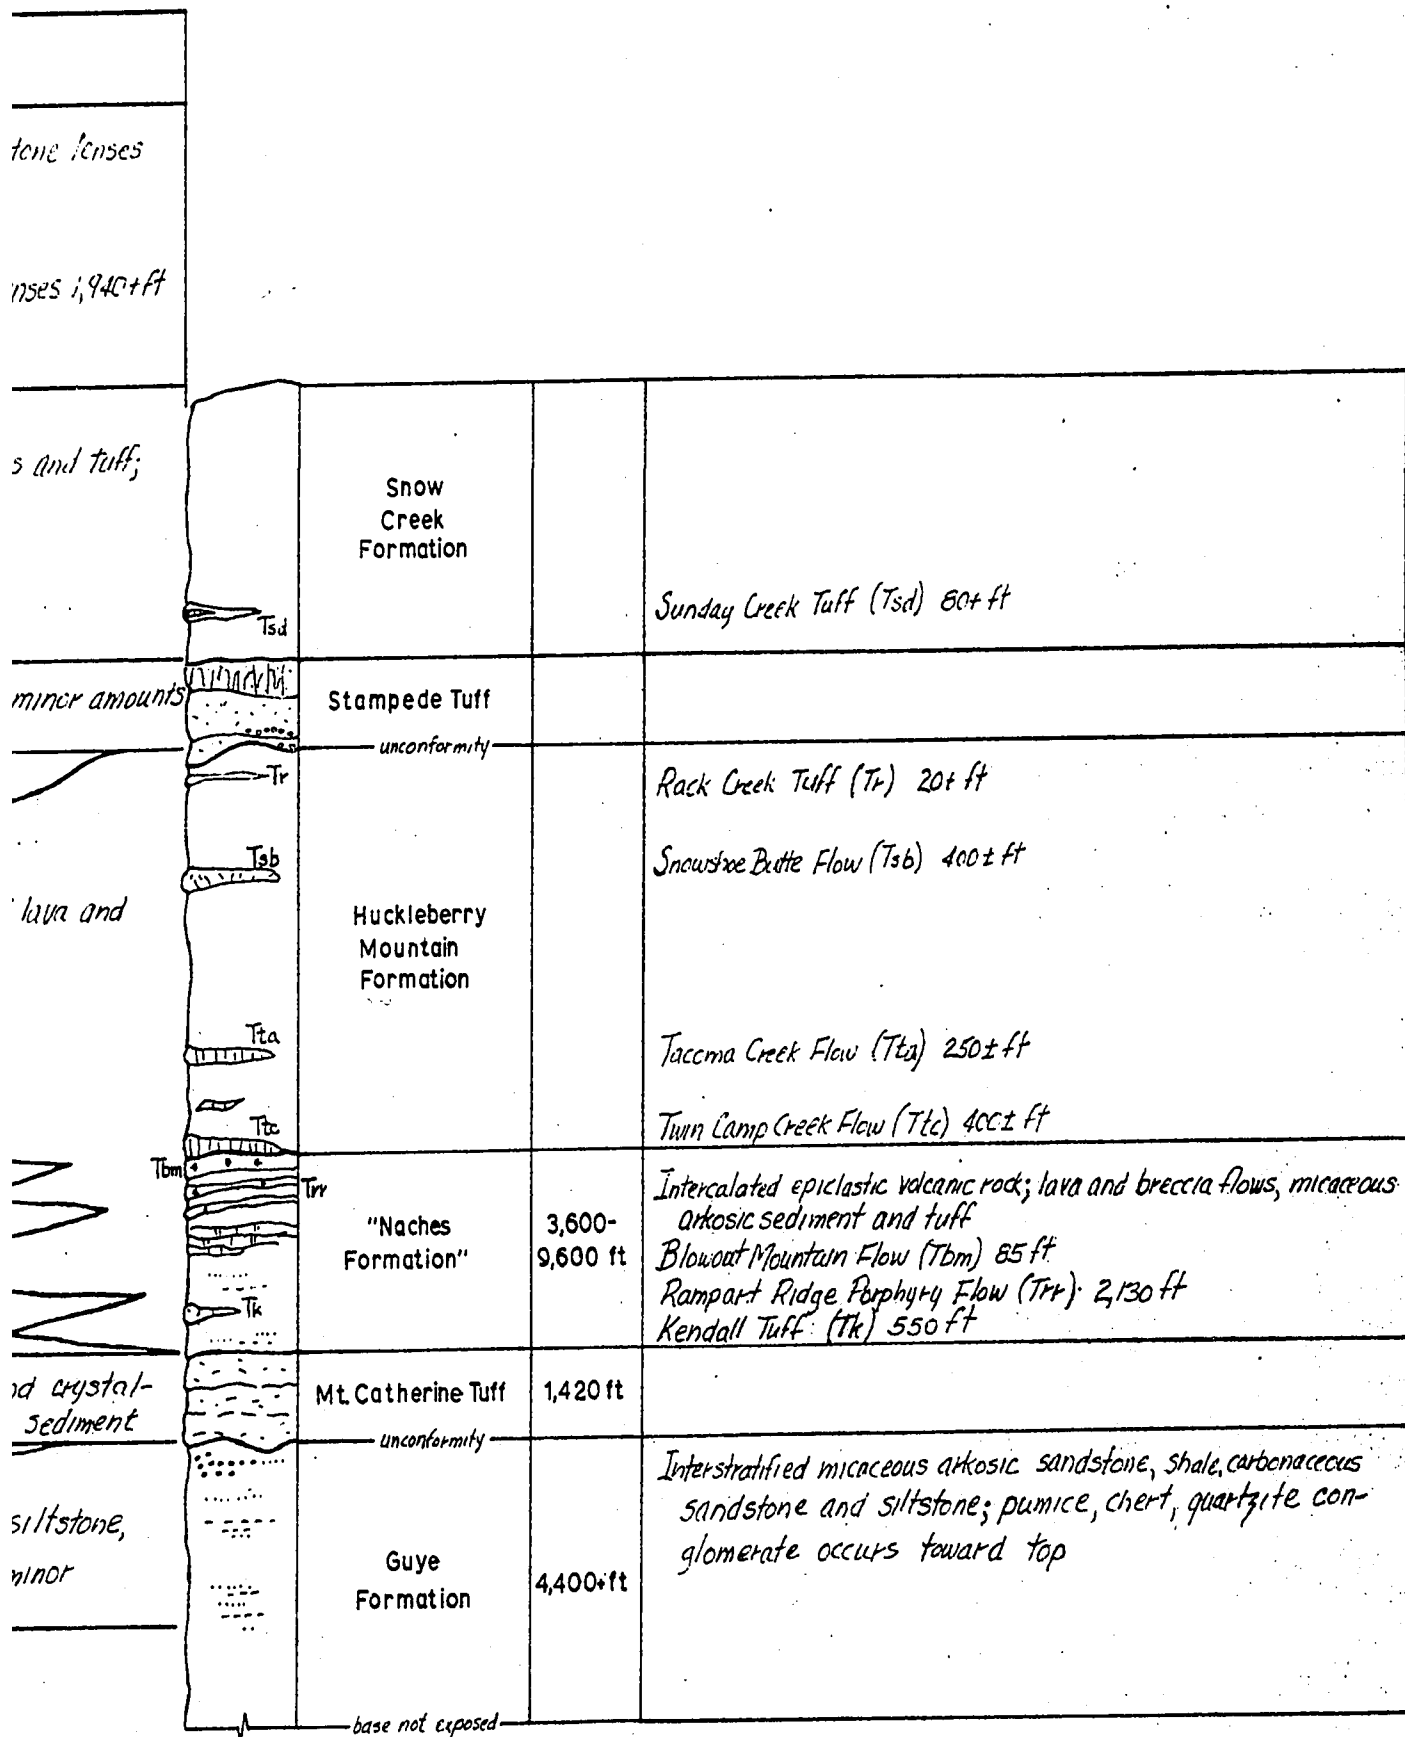 tone lenses
nses 1,940+ft
s and tuff;
minor amounts
lava and
nd crystal-
sediment
siltstone,
minor
Tsd
Tr
Tsb
Tta
Ttc
Tbm
Trr
Tk
Snow
Creek
Formation
Sunday Creek Tuff (Tsd) 80± ft
Stampede Tuff
unconformity
Huckleberry
Mountain
Formation
Rack Creek Tuff (Tr) 20± ft
Snowshoe Butte Flow (Tsb) 400± ft
Tacoma Creek Flow (Tta) 250± ft
Twin Camp Creek Flow (Ttc) 400± ft
"Naches
Formation"
3,600-
9,600 ft
Intercalated epiclastic volcanic rock; lava and breccia flows, micaceous
arkosic sediment and tuff
Blowout Mountain Flow (Tbm) 85 ft
Rampart Ridge Porphyry Flow (Trr) 2,130 ft
Kendall Tuff (Tk) 550 ft
Mt. Catherine Tuff
1,420 ft
unconformity
Guye
Formation
4,400+ft
Interstratified micaceous arkosic sandstone, shale, carbonaceous
sandstone and siltstone; pumice, chert, quartzite con-
glomerate occurs toward top
base not exposed